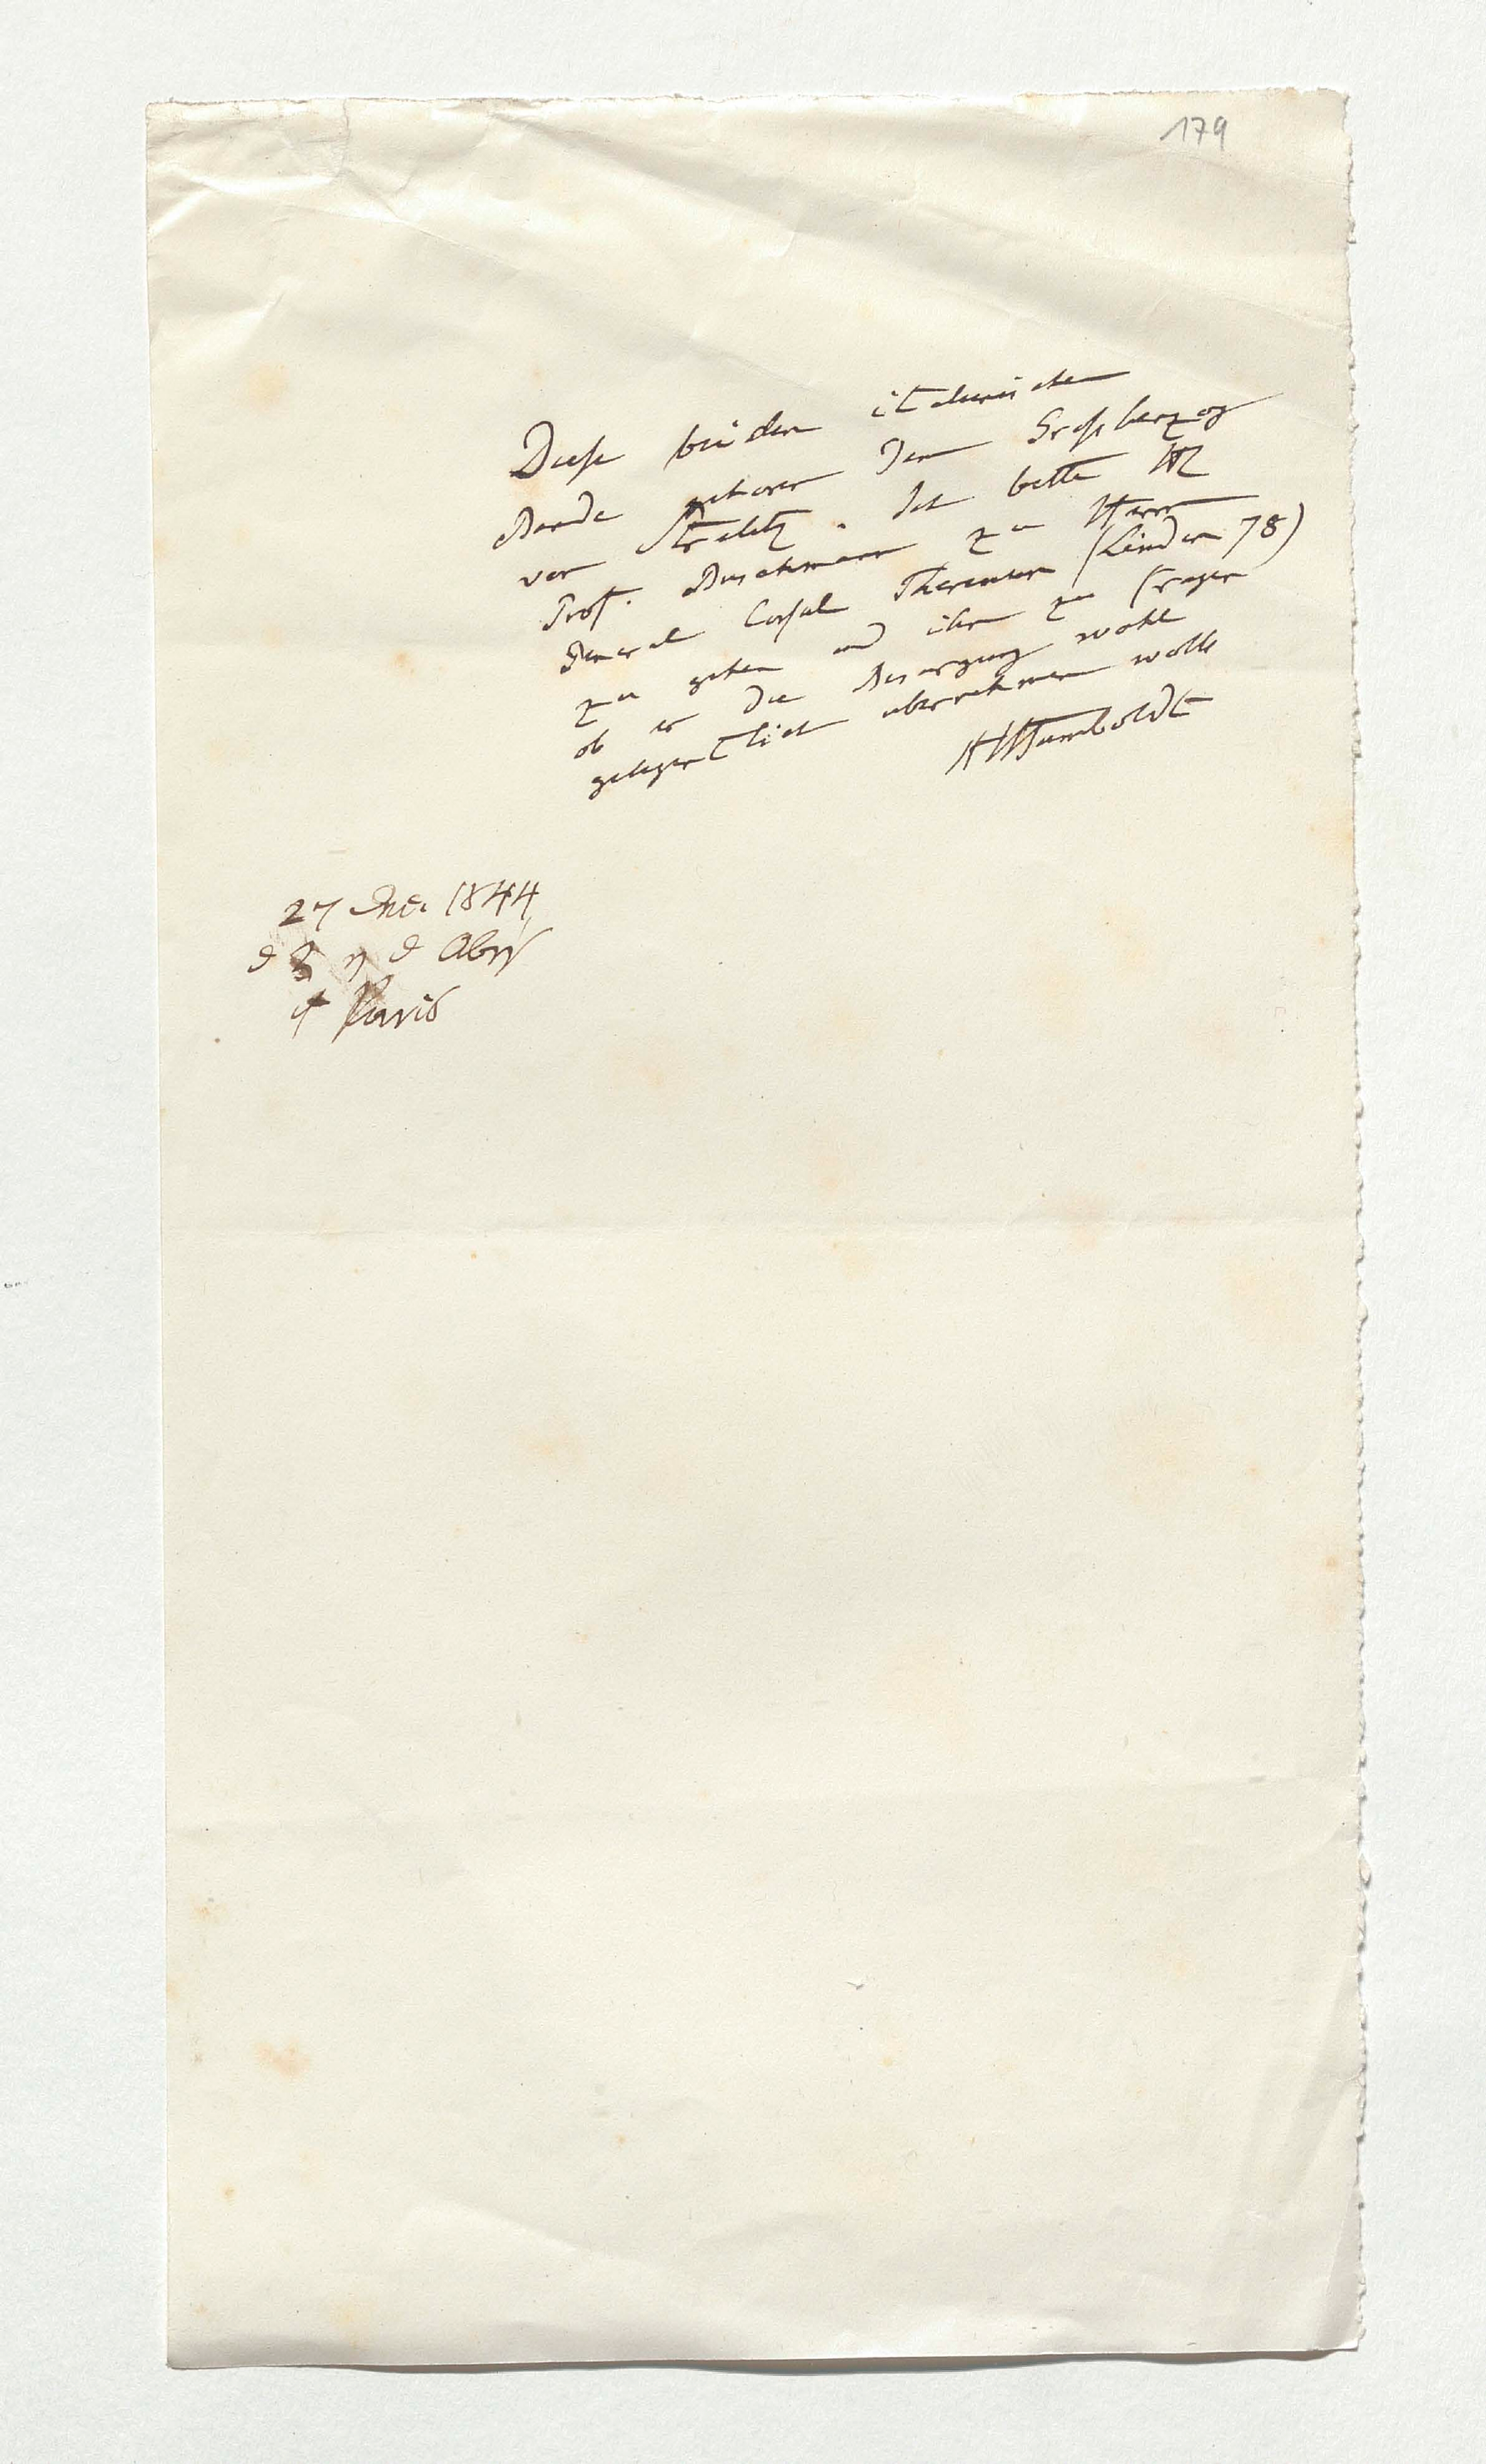 179
Diese beiden italienischen
Bände gehören dem Grosherzog
von Strelitz. Ich bitte H
Prof. Buschmann zu Herrn
General Consul Theremin (Linden 78)
zu gehen und ihn zu fragen
ob er die Besorgung wohl
gelegentlich übernehmen wolle
AHumboldt
27 Dec. 1844
d d Abr
Paris